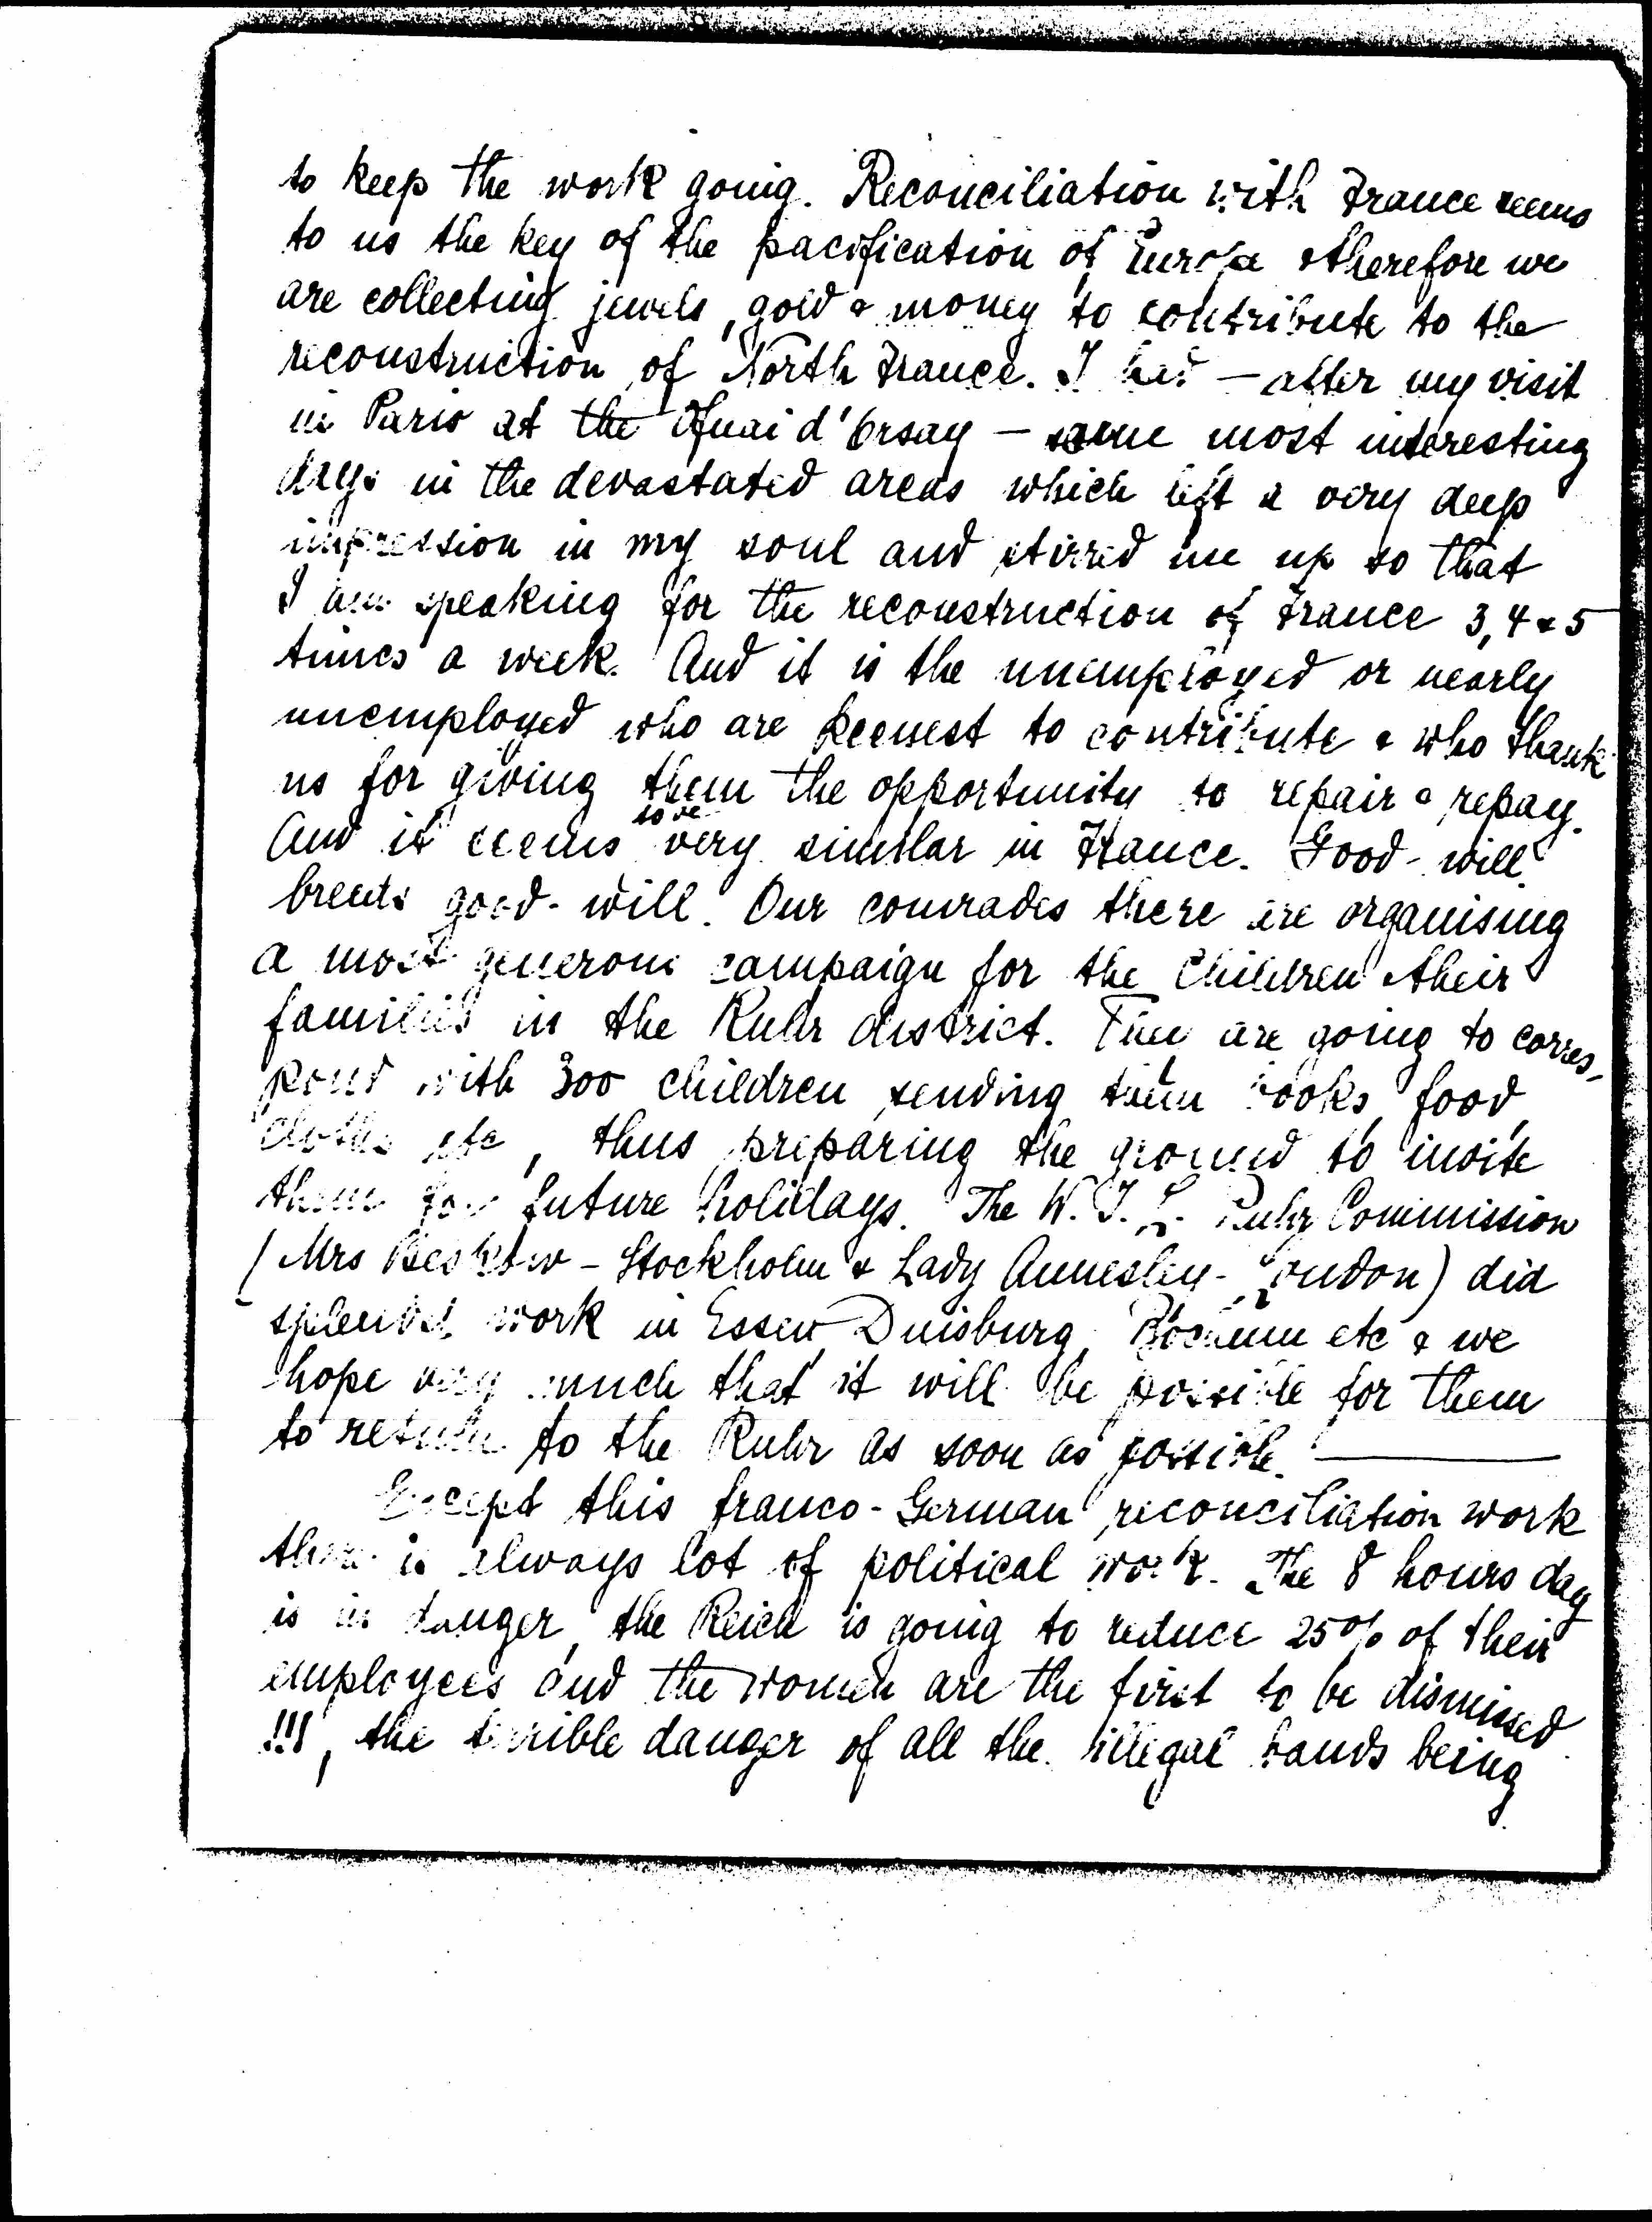 to keep the work going. Reconciliation with France seems
to us the key of the pacification of Europe & therefore we
are collecting jewels, gold & money to contribute to the
reconstruction of North France. I had — after my visit
in Paris at the Quai d'Orsay — some most interesting
days in the devastated areas which left a very deep
impression in my soul and stirred me up so that
I am speaking for the reconstruction of France 3, 4 & 5
times a week. And it is the unemployed or nearly
unemployed who are keenest to contribute & who thank
us for giving them the opportunity to repair & repay.
to be
And it seems very similar in France. Good-will
breeds good-will. Our comrades there are organising
a most generous campaign for the children & their
families in the Ruhr district. They are going to corres-
pond with 300 children, sending them books, food,
cloths etc, thus preparing the ground to invite
them for future holidays. The W. I. L. Ruhr Commission
(Mrs Beskow - Stockholm & Lady Annesley - London) did
splendid work in Essen, Duisburg, Bochum etc & we
hope very much that it will be possible for them
to return to the Ruhr as soon as possible. —
Except this franco-German reconciliation work
there is always lot of political work. The 8 hours day
is in danger, the Reich is going to reduce 25% of their
employees and the women are the first to be dismissed
!!!, the terrible danger of all the illegal bands being